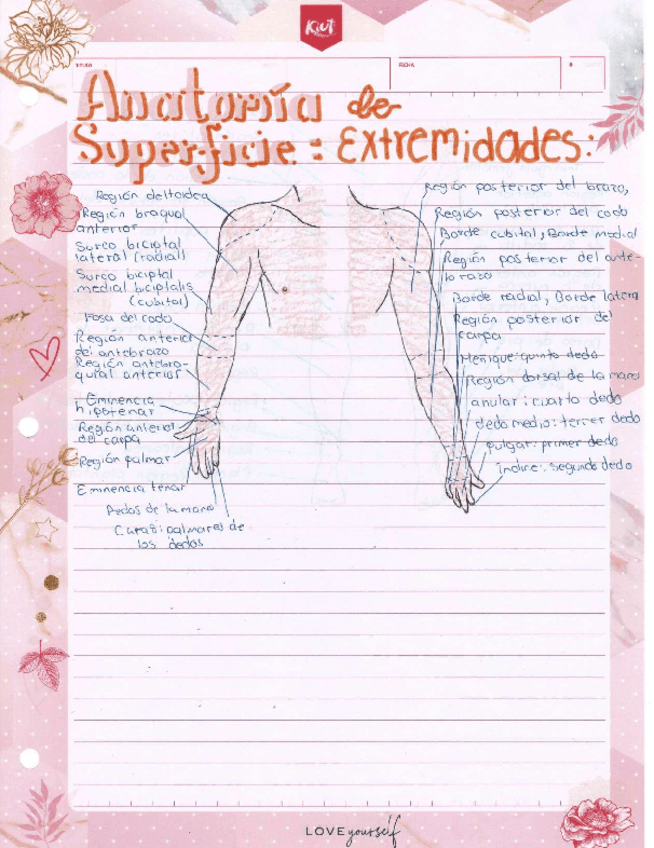 Kiut
TÍTULO
FECHA
#
Anatomía de
Superficie: Extremidades:
Región deltoidea
Región braquial
anterior
Surco bicipital
lateral (radial)
Surco bicipital
medial bicipitalis
(cubital)
Fosa del codo
Región anterior
del antebrazo
Región antebra-
quial anterior
Eminencia
hipotenar
Región anterior
del carpa
Región palmar
Eminencia tenar
Dedos de la mano
Caras: palmares de
los dedos
Región posterior del brazo,
Región posterior del codo
Borde cubital, Borde medial
Región posterior del ante-
brazo
Borde radial, Borde latera
Región posterior del
carpa
Meñique: quinto dedo
Región dorsal de la mano
anular: cuarto dedo
dedo medio: tercer dedo
pulgar: primer dedo
Índice: segundo dedo
LOVE yourself